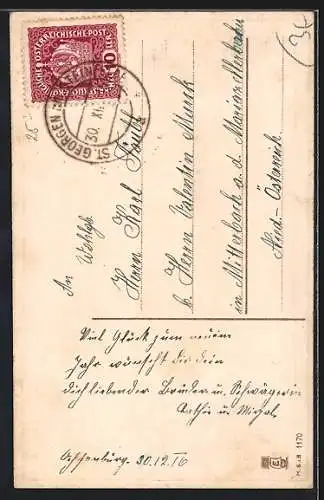 KAISERLICHE ÖSTERREICHISCHE POST
10
ST. GEORGEN
30. XII
28
34
An Wohlgb.
Herrn Karl
b. Herrn Valentin Munk
in Mitterbach a. d. Mariazellerbahn
Nied.-Österreich
Viel Glück zum neuem
Jahr wünscht dir dein
dichliebender Bruder u. Schwägerin
u. Mizzl
30.12.16
M.S.i.B 1170